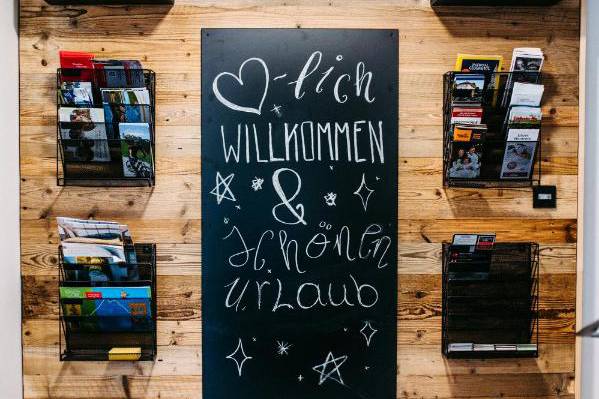 ♡-lich
WILLKOMMEN
&
schönen
Urlaub